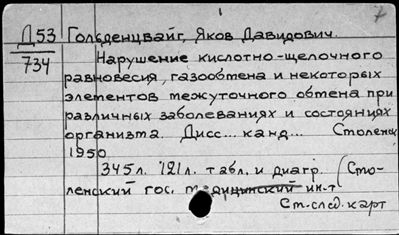 7
Д53 Гольденцвайг, Яков Давидович.
734 Нарушение кислотно-щелочного
равновесия, газообмена и некоторых
элементов межуточного обмена при
различных заболеваниях и состояниях
организма. Дисс... канд... Смоленск
1950
345 л. 121 л. табл. и диагр. (Смо-
ленский гос. медицинский ин-т
Ст. след. карт